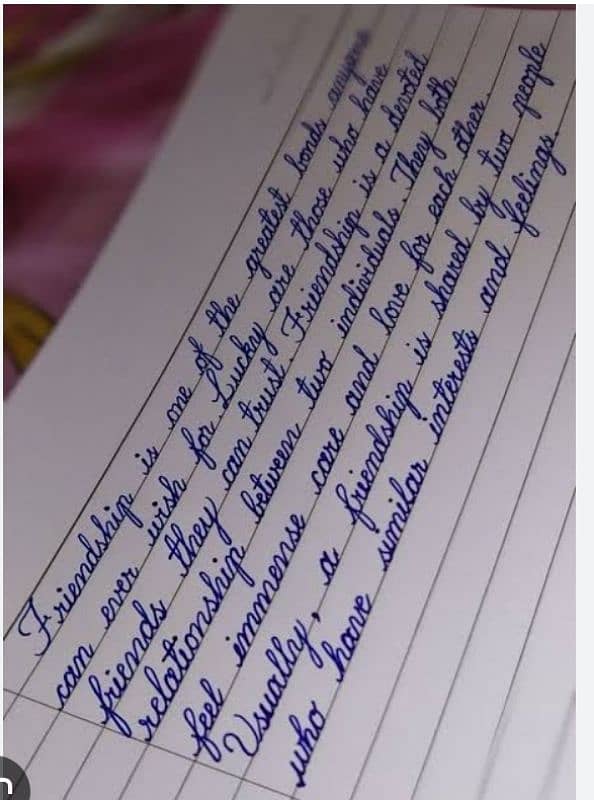 Friendship is one of the greatest bonds anyone
can ever wish for Lucky are those who have
friends they can trust. Friendship is a devoted
relationship between two individuals. They both
feel immense care and love for each other.
Usually, a friendship is shared by two people
who have similar interests and feelings.